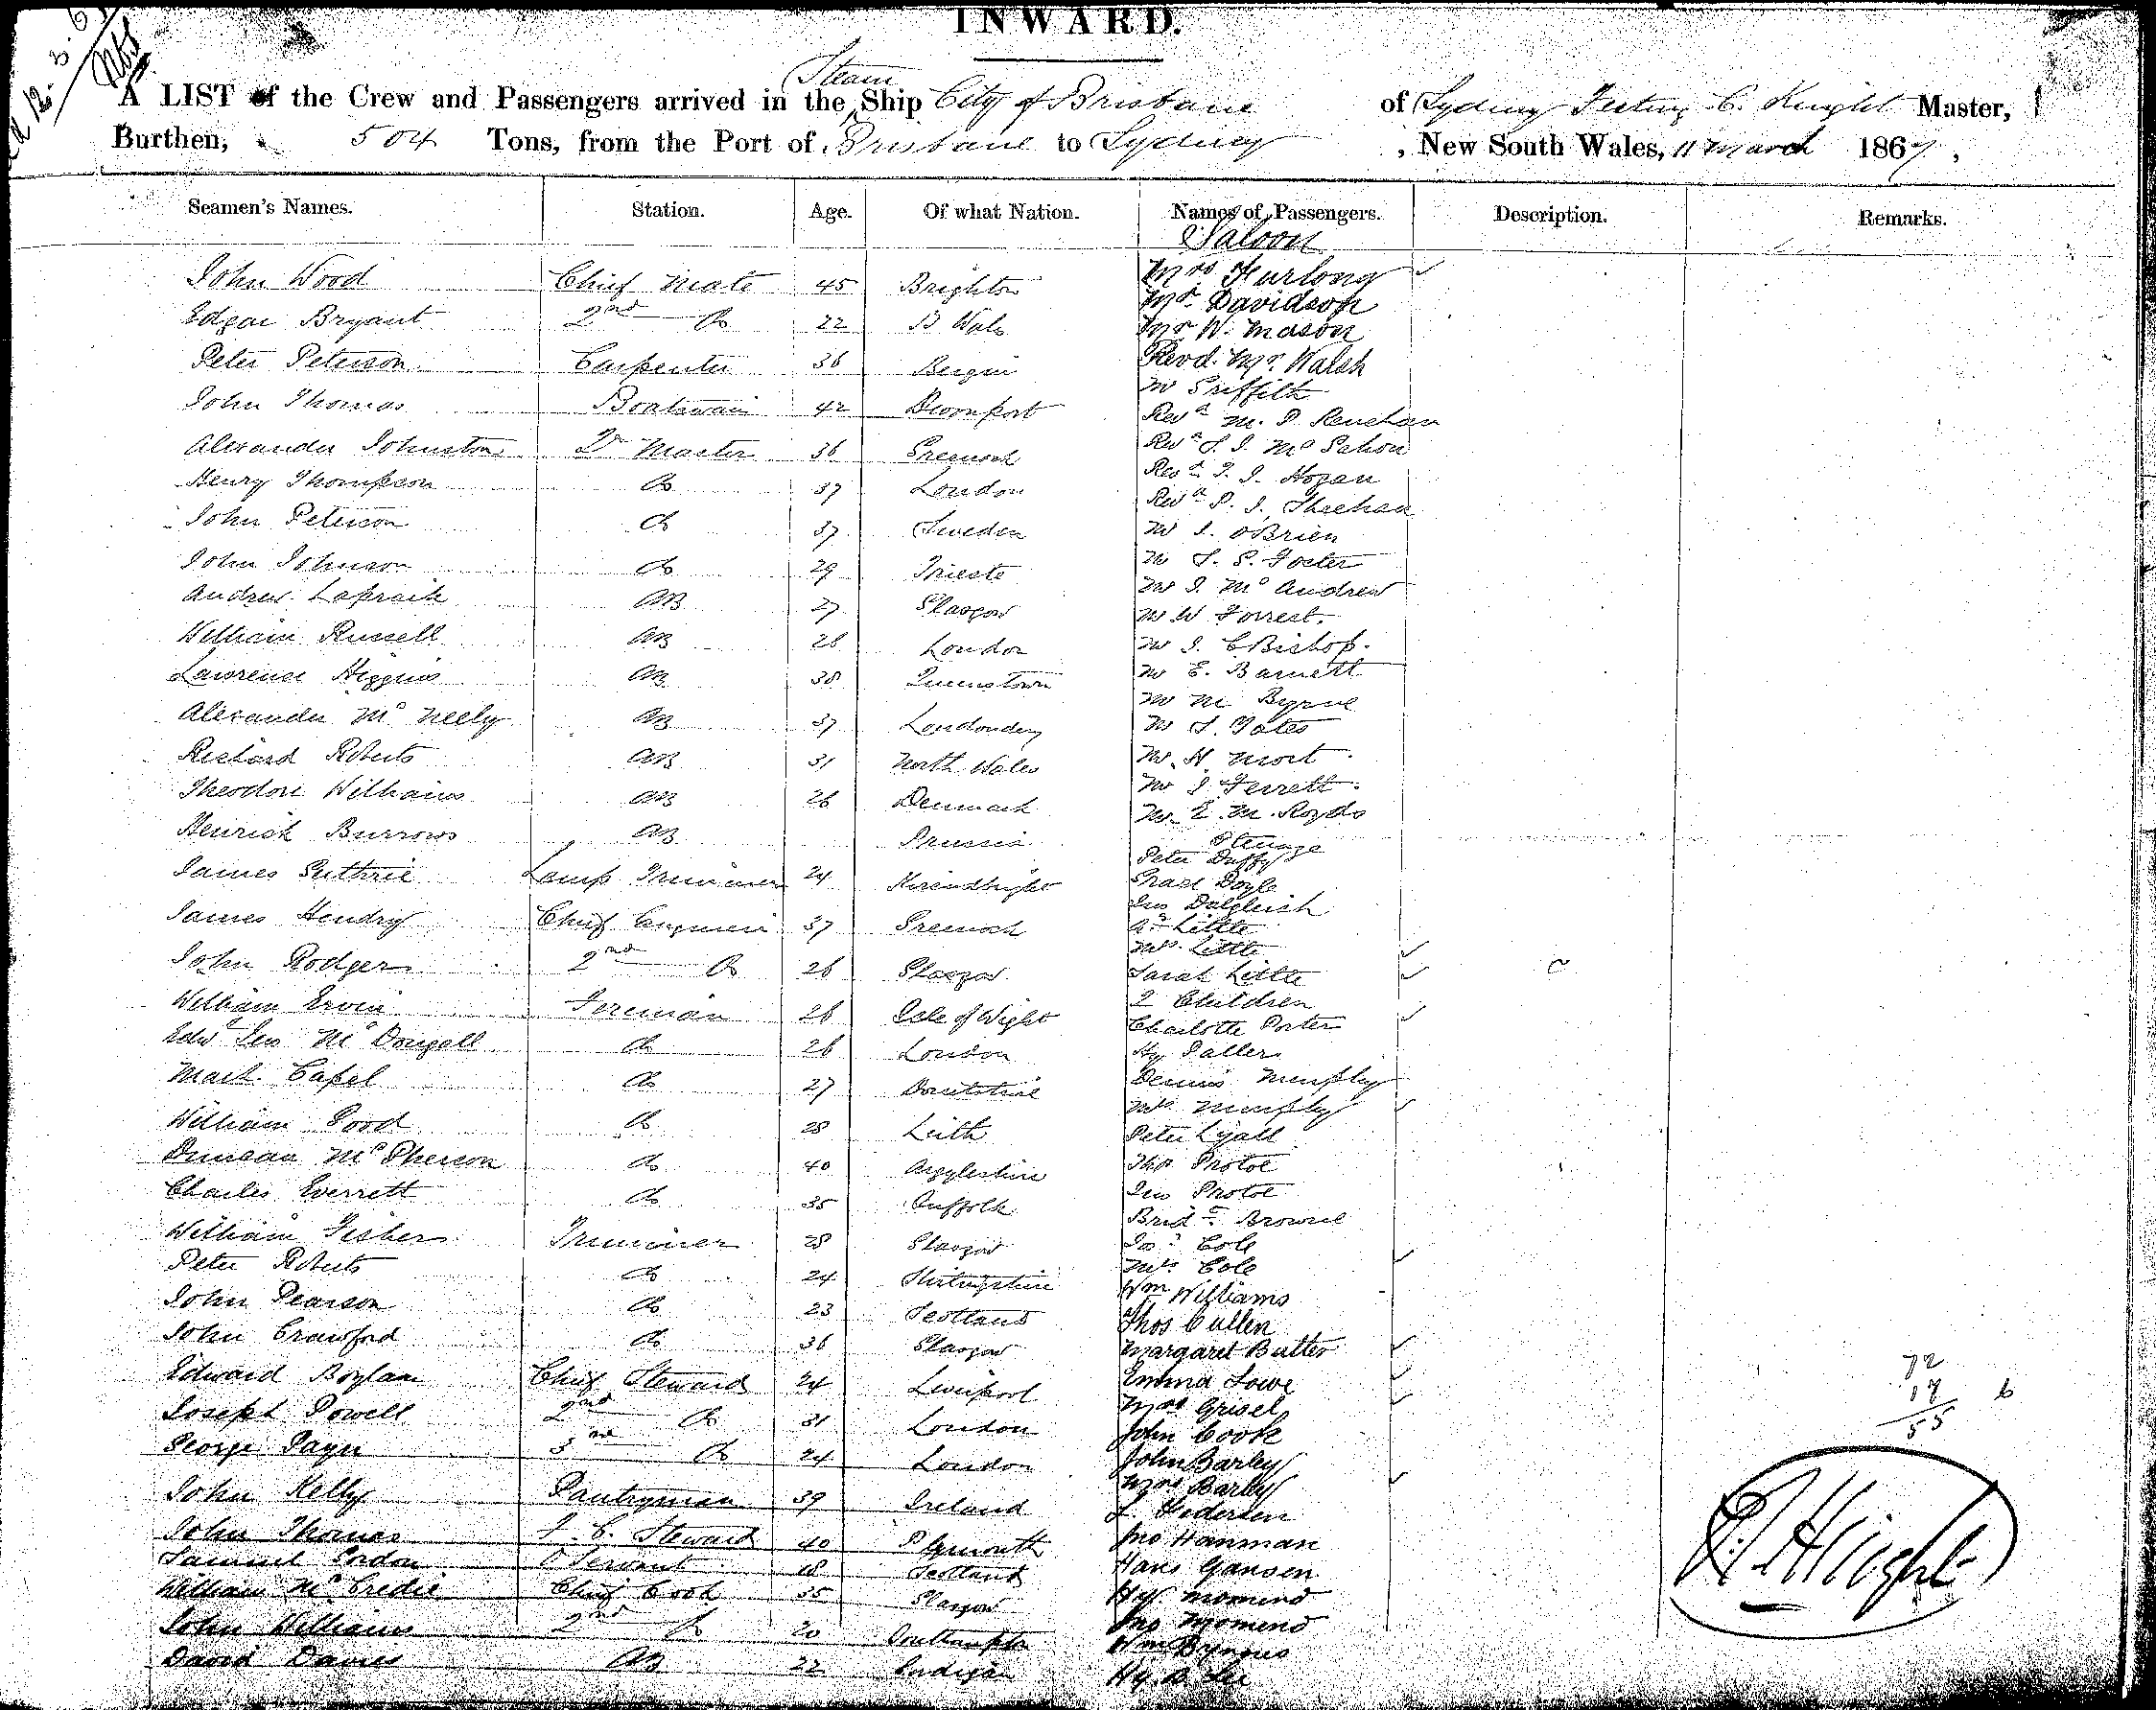 INWARD.
A LIST of the Crew and Passengers arrived in the Steam Ship City of Brisbane of Sydney C. Knight Master,
Burthen, 504 Tons, from the Port of Brisbane to Sydney, New South Wales, 11 March 1867,
Seamen's Names. Station. Age. Of what Nation. Names of Passengers. Description. Remarks.
Saloon
John Wood Chief Mate 45 Brighton Mrs Furlong
Mr. Davidson
Edgar Bryant 2nd Do 22 Mr W. Mason
Peter Peterson Carpenter 36 Revd. Mr. Walsh
Mr Griffith
John Thomas Boatswain 42 Devonport Revd M. P. Renehan
Alexander Johnston Qr Master 36 Greenock Revd
Henry Thompson Do 37 London Revd Hogan
Revd P. J. Sheehan
John Peterson Do 37 Sweden Mr J. OBrien
John Johnson Do 29 Trieste Mr Foster
Mr J. Mc Andrew
Andrew Lapraik AB 27 Glasgow Mr W Forrest.
William Russell AB 28 London Mr J. C Bishop.
Lawrence Higgins AB 38 Queenstown Mr E. Barnett
Alexander Mc Neely AB 37 Londonderry Mr M Byrne
Mr Yates
Richard Roberts AB 31 North Wales Mr. H Mort.
Theodore Williams AB 26 Denmark Mr J Ferrett.
Mr. E. M. Royds
Henrich Burrows AB Prussia Steerage
Peter Duffy
James Guthrie Lamp Trimmer 24 Grace Doyle
Jas Dalgleish
James Hendry Chief Engineer 37 Greenock Little
Mrs. Little
John Rodger 2nd Do 26 Glasgow Sarah Little
2 Children
William Ervin Fireman 26 Isle of Wight Charlotte Porter
Edwd Mc Dougall Do 26 London Hy
Mark Capel Do 27 Dennis Murphy
Mrs Murphy
William Good Do 28 Leith Peter Lyall
Duncan McPherson Do 40 Argyleshire Thos Protoe
Charles Everrett Do 35 Suffolk Protoe
Browne
William Fisher Trimmer 28 Glasgow Cole
Peter Roberts Do 24 Stirlingshire Mrs. Cole
Wm Williams
John Pearson Do 23 Scotland Thos Cullen
John Crawford Do 36 Glasgow Margaret Butter
Edward Boylan Chief Steward 24 Liverpool Emma Lowe
72
Mrs Grisel
17 6
Joseph Powell 2nd Do 31 London John Cook
55
George Payn 3rd Do 24 London John Barley
Mrs Barley
John Kelly Pantryman 39 Ireland L Pedersen
John Thomas F. C. Steward 40 Plymouth Jno Hanman
Samuel Gordon Servant 18 Scotland Hans Gansen
William McCredie Chief Cook 35 Glasgow Hy. Momend
John Williams 2nd Do 20 Southampton Jno Momend
David Davies AB 22 Cardigan Wm
Hy. B. Lee